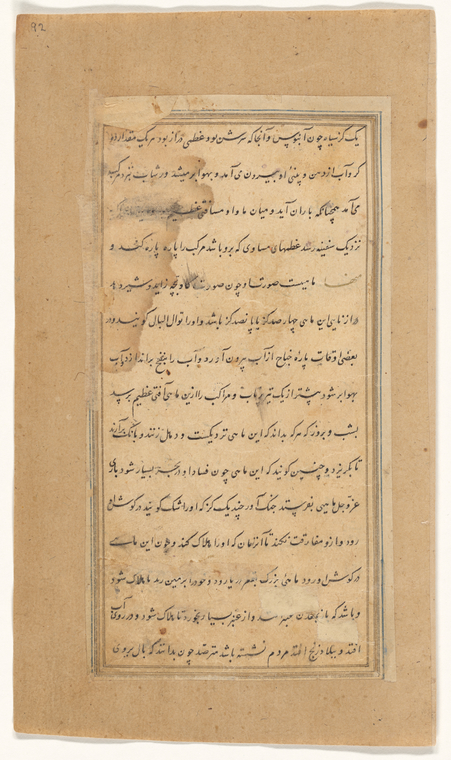 92
یک گز سیاه چون آبنوس و آنجا که سرش بود عظمی دراز بود مریک مقدار ده
کز و آب از دهن و بینی او بیرون می آمد و بهوا بر میشد و رشاشات بنزد مرکب
می آمد همچنانکه باران آید و میان ما و او مسافتی عظیم بود
نزدیک سفینه رسد عظمهای مساوی که برو باشد مرکب را پاره پاره کند و
ماهیست صورت او چون صورت گاو بچه زاید و شیر دهد
از این ماهی چهارصد گز یا پانصد گز باشد و او را توال البال گویند و در
بعضی اوقات پاره جناح از آب بیرون آورد و آب را بنفخ براندازد و آب
بهوا بر شود بیشتر از یک تیر پرتاب و مراکب را ازین ماهی آفتی عظیم برسد
بشب و بروز که مرکه بداند که این ماهی نزدیکست و دهل زنند و بانک برآرند
تا بگریزد و چنین گویند که این ماهی چون فساد او در بحر بسیار شود باری
عز و جل ماهیی بفرستد چند یک گز که او را اشک گویند در گوش او
رود و ازو مفارقت نکند تا آن زمان که او را هلاک کند و چون این ماهی
در گوش او رود ماهی بزرگ بقعر دریا رود و خود را بر زمین زند تا هلاک شود
و باشد که بمعدن عنبر رسد و از عنبر بسیار بخورد تا هلاک شود و در روی آب
افتد و ببلاد زنج افتد مردم نشسته باشد مترصد چون بدانند که بال بروی